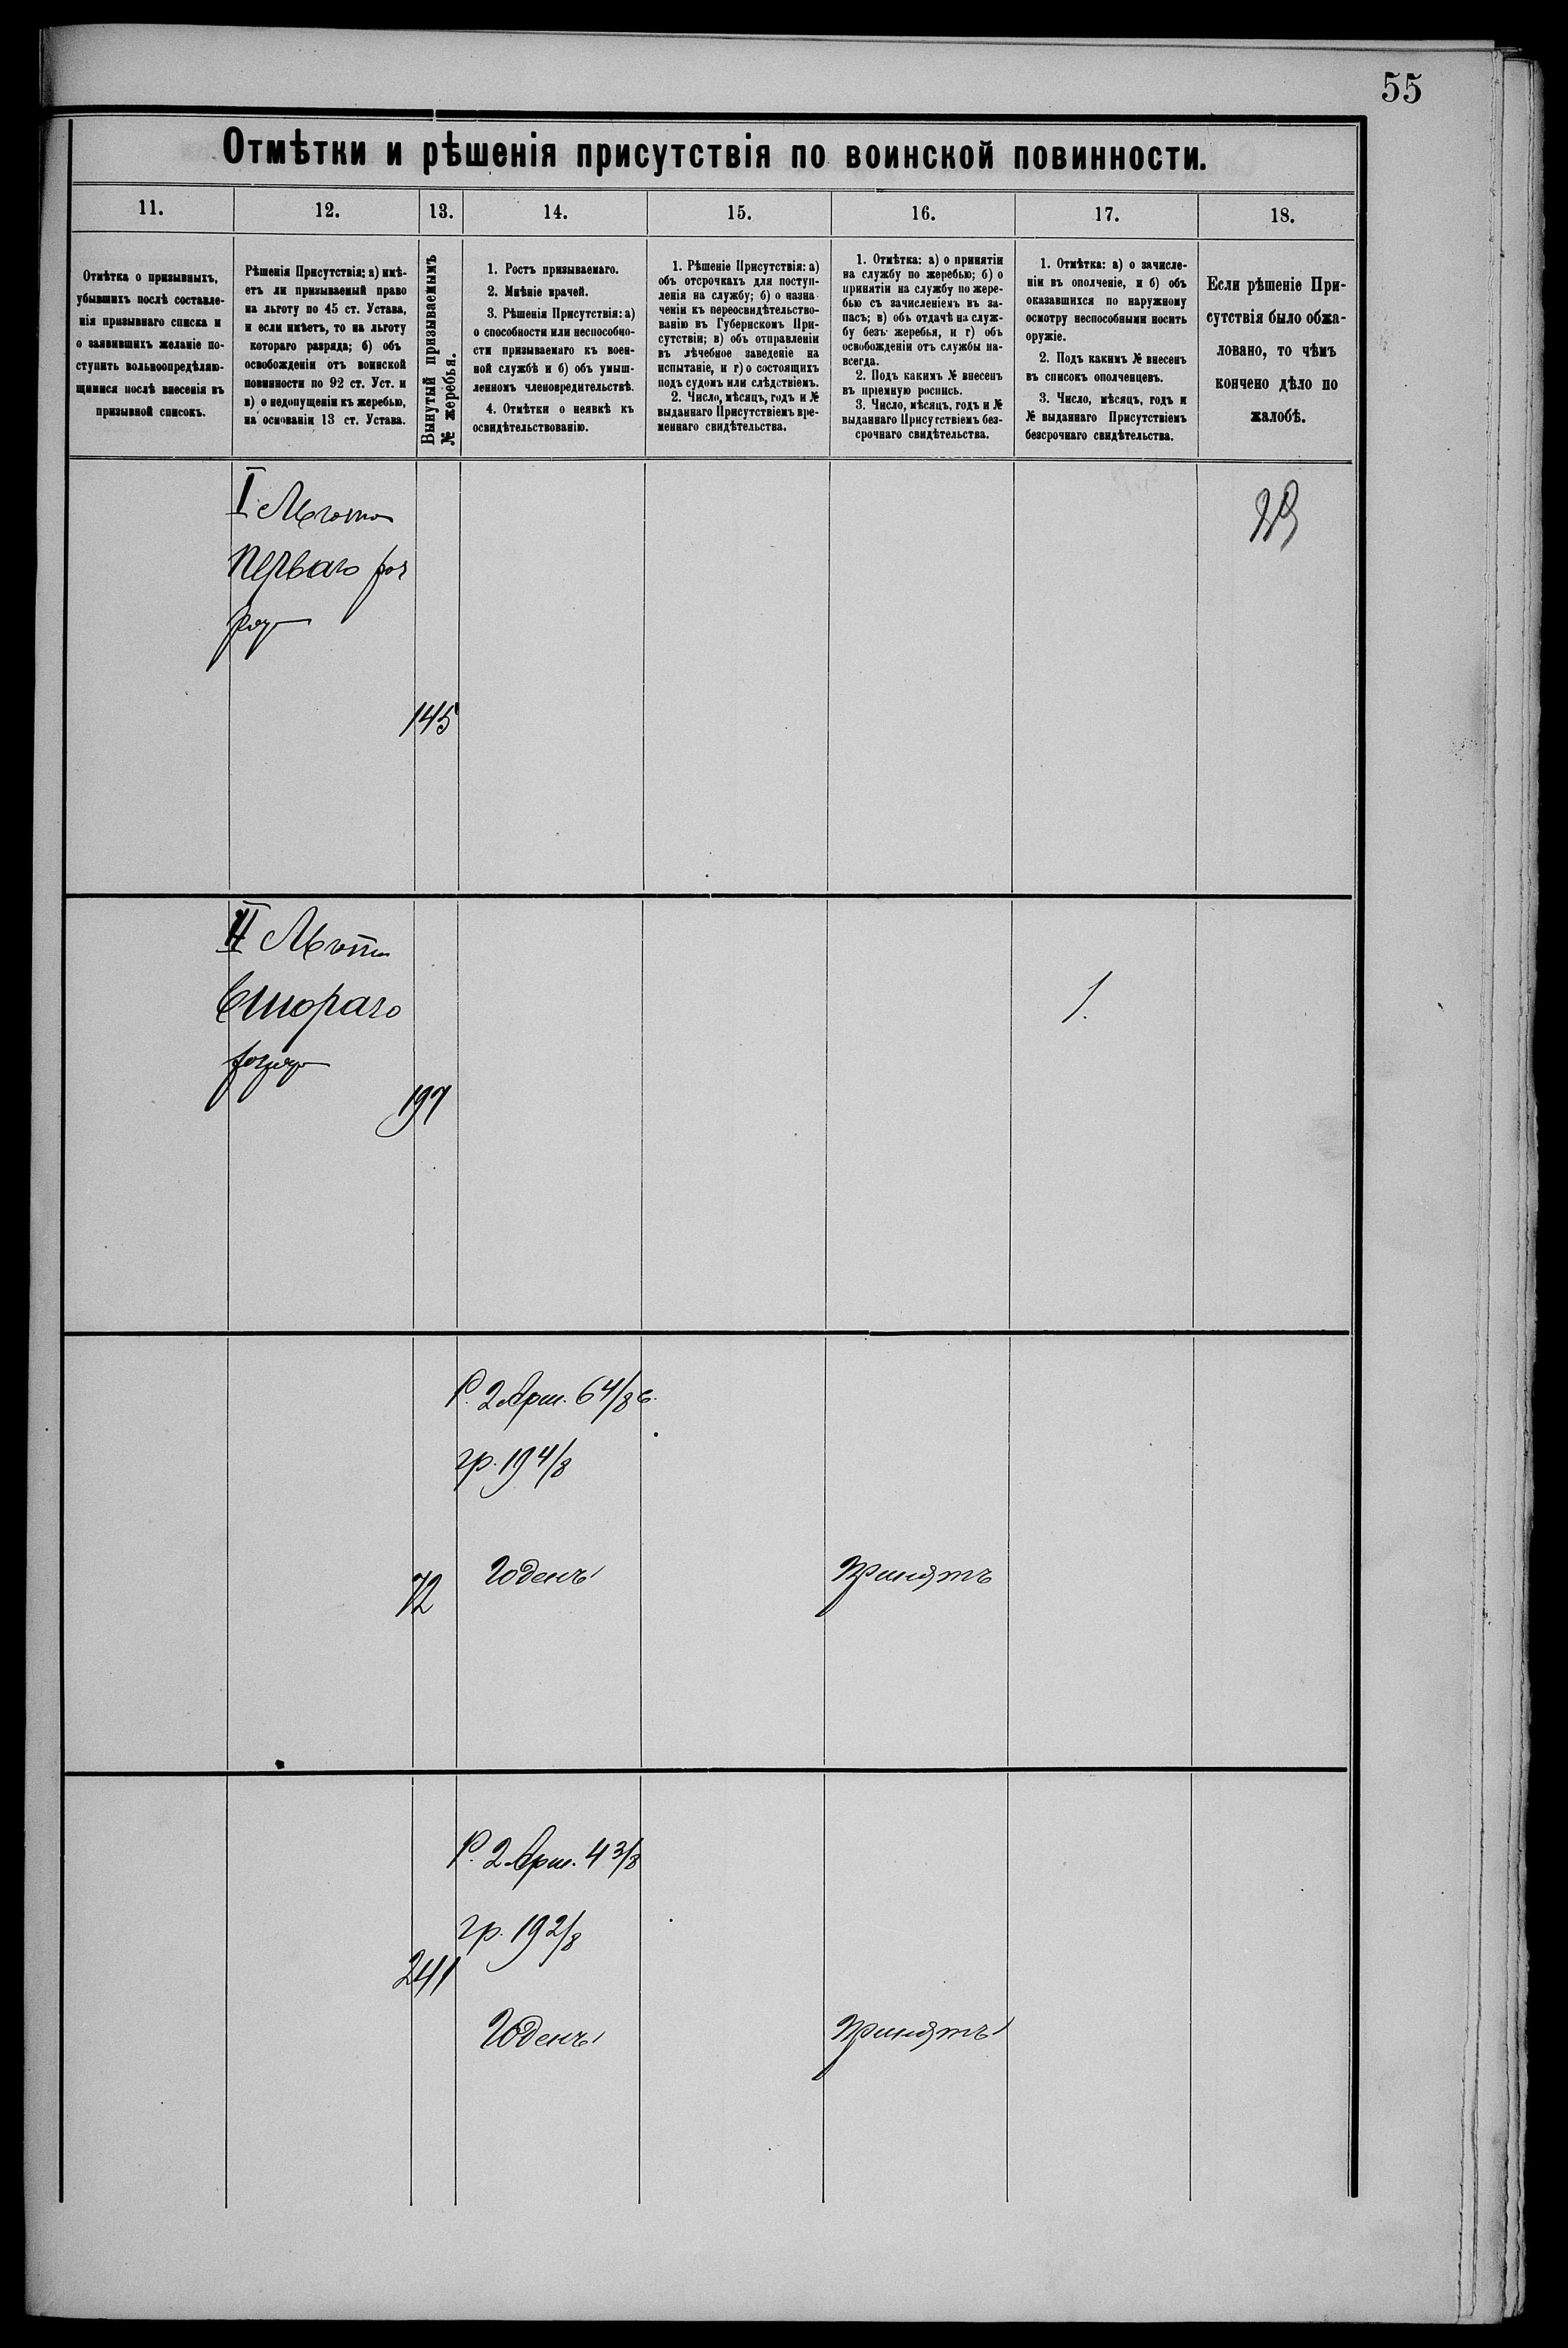 55
Отмѣтки и рѣшенія присутствія по воинской повинности.
11.
12.
13.
14.
15.
16.
17.
18.
Отмѣтка о призывныхъ,
убывшихъ послѣ составле-
нія призывнаго списка и
о заявившихъ желаніе по-
ступить вольноопредѣляю-
щимися послѣ внесенія въ
призывной списокъ.
Рѣшенія Присутствія: а) имѣ-
етъ ли призываемый право
на льготу по 45 ст. Устава,
и если имѣетъ, то на льготу
котораго разряда; б) объ
освобожденіи отъ воинской
повинности по 92 ст. Уст. и
в) о недопущеніи къ жеребью,
на основаніи 13 ст. Устава.
Вынутый призываемымъ
№ жеребья.
1. Ростъ призываемаго.
2. Мнѣніе врачей.
3. Рѣшенія Присутствія: а)
о способности или неспособно-
сти призываемаго къ воен-
ной службѣ и б) объ умыш-
ленномъ членовредительствѣ.
4. Отмѣтки о неявкѣ къ
освидѣтельствованію.
1. Рѣшеніе Присутствія: а)
объ отсрочкахъ для поступ-
ленія на службу; б) о назна-
ченіи къ переосвидѣтельство-
ванію въ Губернскомъ При-
сутствіи; в) объ отправленіи
въ лѣчебное заведеніе на
испытаніе, и г) о состоящихъ
подъ судомъ или слѣдствіемъ.
2. Число, мѣсяцъ, годъ и №
выданнаго Присутствіемъ вре-
меннаго свидѣтельства.
1. Отмѣтка: а) о принятіи
на службу по жеребью; б) о
принятіи на службу по жере-
бью съ зачисленіемъ въ за-
пасъ; в) объ отдачѣ на служ-
бу безъ жеребья, и г) объ
освобожденіи отъ службы на-
всегда.
2. Подъ какимъ № внесенъ
въ пріемную роспись.
3. Число, мѣсяцъ, годъ и №
выданнаго Присутствіемъ без-
срочнаго свидѣтельства.
1. Отмѣтка: а) о зачисле-
ніи въ ополченіе, и б) объ
оказавшихся по наружному
осмотру неспособными носить
оружіе.
2. Подъ какимъ № внесенъ
въ списокъ ополченцевъ.
3. Число, мѣсяцъ, годъ и
№ выданнаго Присутствіемъ
безсрочнаго свидѣтельства.
Если рѣшеніе При-
сутствія было обжа-
ловано, то чѣмъ
кончено дѣло по
жалобѣ.
I Льгота
перваго раз
ряда
145
II Льгота
втораго
разряда
197
1.
Р. 2 Арш. 6 4/8 в.
гр. 19 4/8
72
Годенъ
Принятъ
Р. 2 Арш. 4 3/8
гр. 19 2/8
241
Годенъ
Принятъ